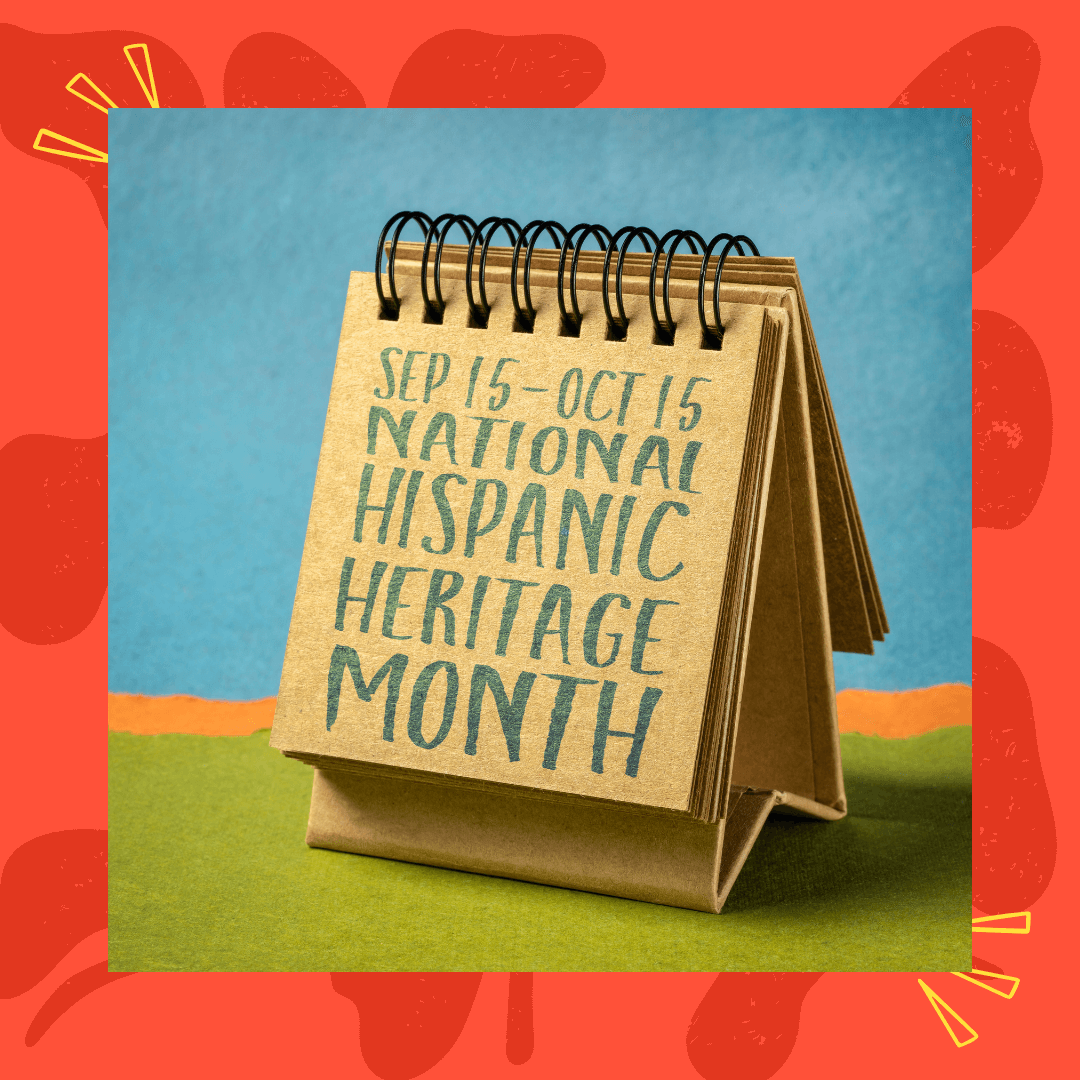 SEP 15-OCT 15
NATIONAL
HISPANIC
HERITAGE
MONTH